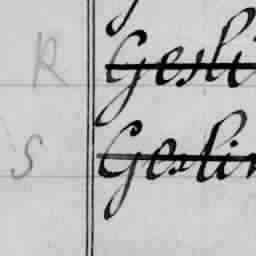 R Gesli
S Geslin